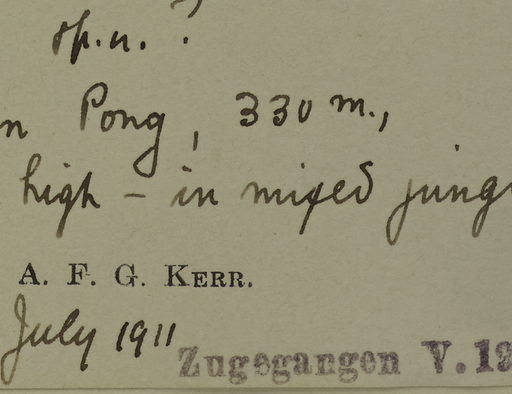 sp.n. ?
n Pong, 330 m.,
high – in mixed jung
A. F. G. KERR.
July 1911
Zugegangen V. 19